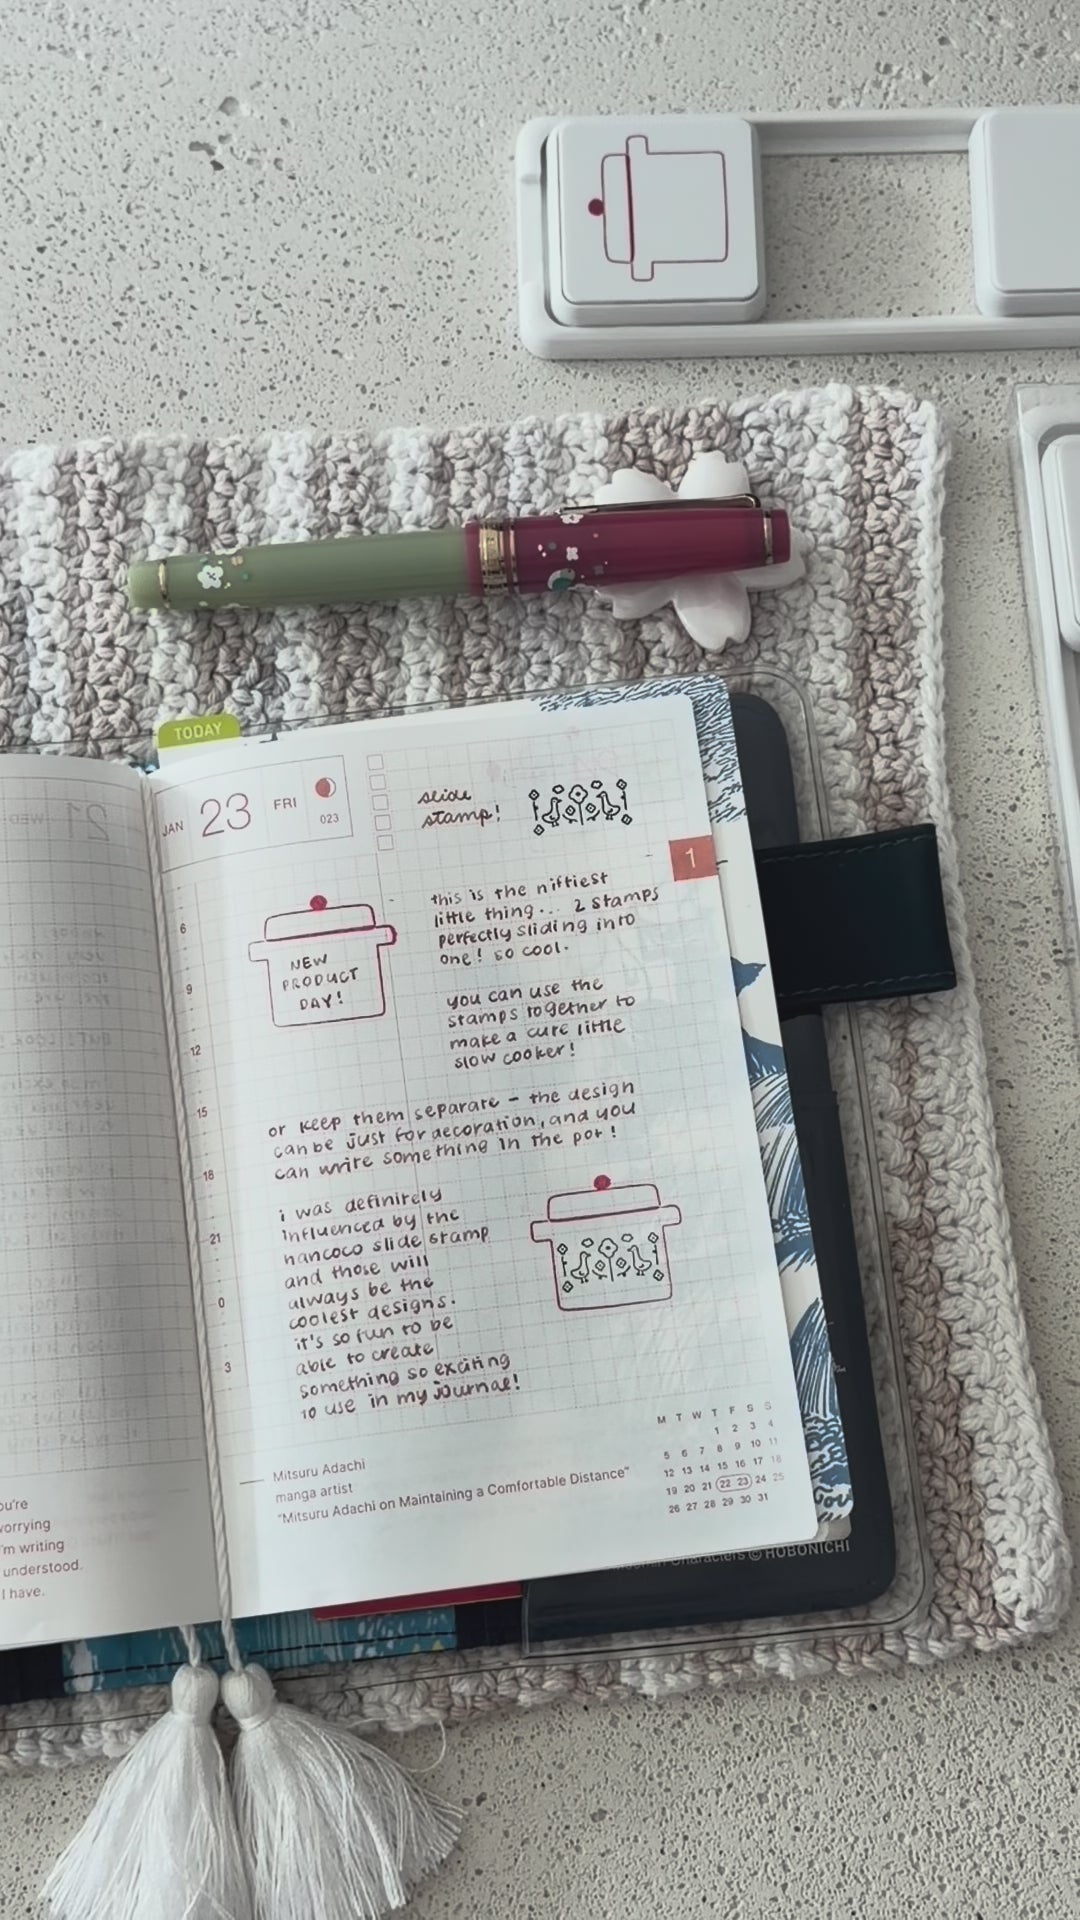 TODAY
JAN 23 FRI
023
slide
stamp!
1
NEW
PRODUCT
DAY!
this is the niftiest
little thing... 2 stamps
perfectly sliding into
one! so cool.
you can use the
stamps together to
make a cute little
slow cooker!
or keep them separate - the design
can be just for decoration, and you
can write something in the pot!
i was definitely
influenced by the
hancoco slide stamp
and those will
always be the
coolest designs.
it's so fun to be
able to create
something so exciting
to use in my journal!
6
9
12
15
18
21
0
3
Mitsuru Adachi
manga artist
"Mitsuru Adachi on Maintaining a Comfortable Distance"
M T W T F S S
1 2 3 4
5 6 7 8 9 10 11
12 13 14 15 16 17 18
19 20 21 22 23 24 25
26 27 28 29 30 31
21 WED
ou're
vorrying
'm writing
understood.
I have.
Characters © HOBONICHI